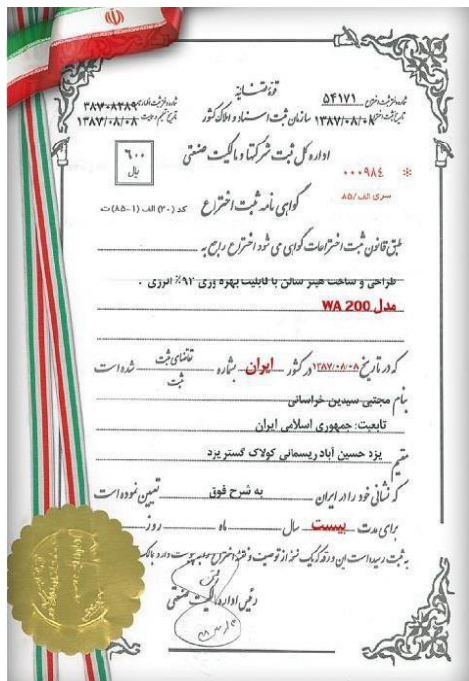 قوه قضائیه
سازمان ثبت اسناد و املاک کشور
شماره و تاریخ ثبت اختراع ۵۴۱۷۱
۱۳۸۷/۰۸/۰۸
۳۸۷۰۸۲۸۹
۱۳۸۷/۰۸/۰۸
اداره کل ثبت شرکتها و مالکیت صنعتی
۶۰۰
ریال
* ۰۰۰۹۸٤
سری الف/۸۵
گواهی نامه ثبت اختراع
کد (۳۰) الف (۱-۸۵)ت
طبق قانون ثبت اختراعات گواهی می شود اختراع راجع به
طراحی و ساخت هیتر سالن با قابلیت بهره وری ۹۲٪ انرژی .
مدل WA 200
که در تاریخ ۱۳۸۷/۰۸/۰۸ در کشور ایران بشماره تقاضای ثبت شده است
ثبت
بنام مجتبی سیدین خراسانی
تابعیت: جمهوری اسلامی ایران
مقیم یزد حسین آباد ریسمانی کولاک گستر یزد
که نشانی خود را در ایران به شرح فوق تعیین نموده است
برای مدت بیست سال ماه روز
به ثبت رسیده است این ورقه که یک نسخه از توصیف و نقشه اختراع
رئیس اداره مالکیت صنعتی